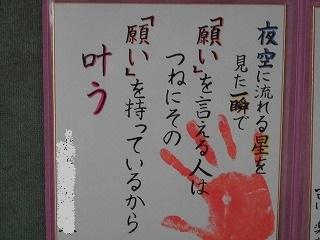 夜空に流れる星を
見た一瞬で
「願い」を言える人は
つねにその
「願い」を持っているから
叶う